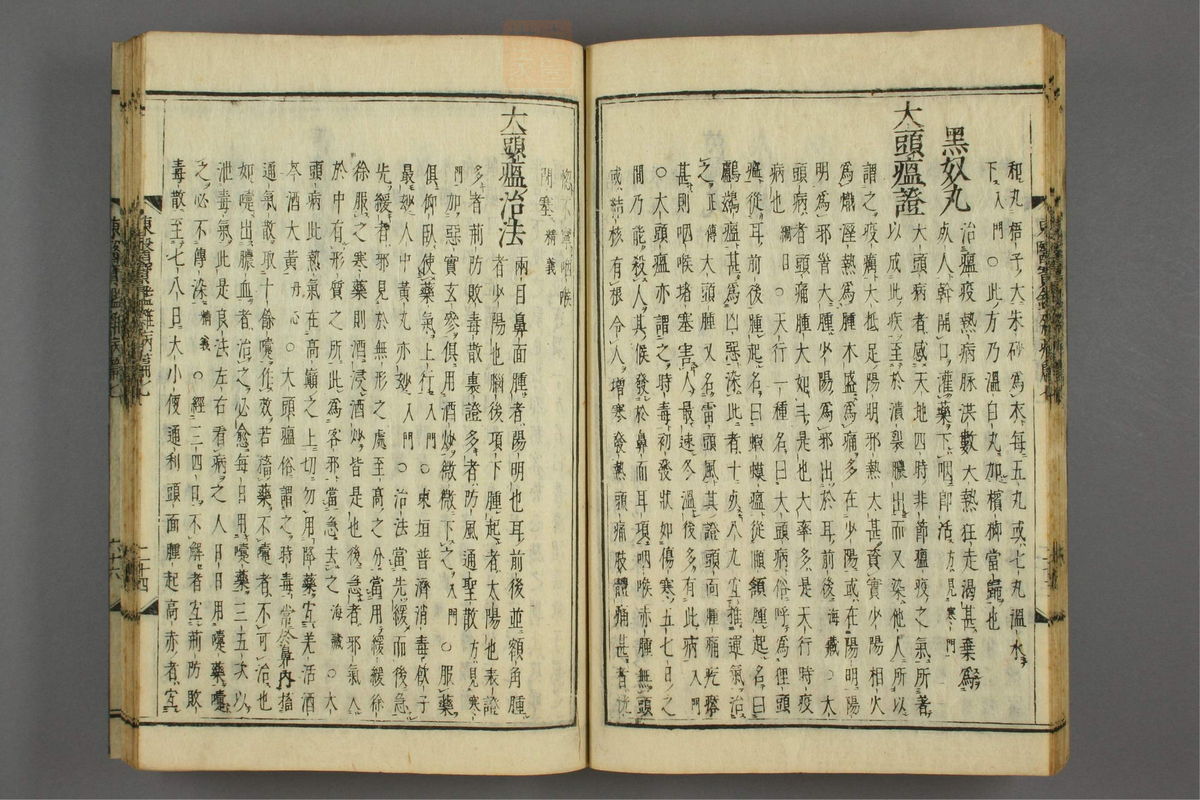 和丸梧子大朱砂爲衣每五丸或七丸溫水
下入門○此方乃溫白丸加檳榔當歸也
黑奴丸 治瘟疫熱病脉洪數大熱狂走渴甚棄爲
死人幹開口灌藥下咽卽活方見寒門
大頭瘟證 大頭病者感天地四時非節瘟疫之氣所著
以成此疾至於潰裂膿出而又染他人所以
謂之疫癘大抵足陽明邪熱太甚資實少陽相火
爲熾濕熱爲腫木盛爲痛多在少陽或在陽明陽
明爲邪首大腫少陽爲邪出於耳前後海藏○大
頭病者頭痛腫大如斗是也大率多是天行時疫
病也綱目○天行一種名曰大頭病俗呼爲狸頭
瘟從耳前後腫起名曰蝦蟆瘟從頤頷腫起名曰
鸕鷀瘟甚爲凶惡染此者十死八九宜推運氣治
之正傳大頭腫又名雷頭風其證頭面腫痛疙瘩
甚則咽喉堵塞害人最速冬溫後多有此病入門
○大頭瘟亦謂之時毒初發狀如傷寒五七日之
間乃能殺人其候發於鼻面耳項咽喉赤腫無頭
或結核有根令人增寒發熱頭痛肢體痛甚者恍
惚不寧咽喉
閉塞精義
大頭瘟治法 兩目鼻面腫者陽明也耳前後並額角腫
者少陽也腦後項下腫起者太陽也表證
多者荊防敗毒散裏證多者防風通聖散方見寒
門加惡實玄參俱用酒炒微微下之入門○服藥
俱仰臥使藥氣上行入門○東垣普濟消毒飮子
最妙人中黃丸亦妙入門○治法當先緩而後急
先緩者邪見於無形之處至高之分當用緩緩徐
徐服之寒藥則酒浸酒炒皆是也後急者邪氣入
於中有形質之所此爲客邪當急去之海藏○大
頭病此熱氣在高巓之上切勿用降藥宜羌活酒
芩酒大黃丹心○大頭瘟俗謂之時毒常於鼻內搐
通氣散取十餘嚏作效若搐藥不嚏者不可治也
如嚏出膿血者治之必愈每日用嚏藥三五次以
泄毒氣此是良法左右看病之人日日用嚏藥嚏
之必不傳染精義○經三四日不解者宜荊防敗
毒散至七八日大小便通利頭面腫起高赤者宜